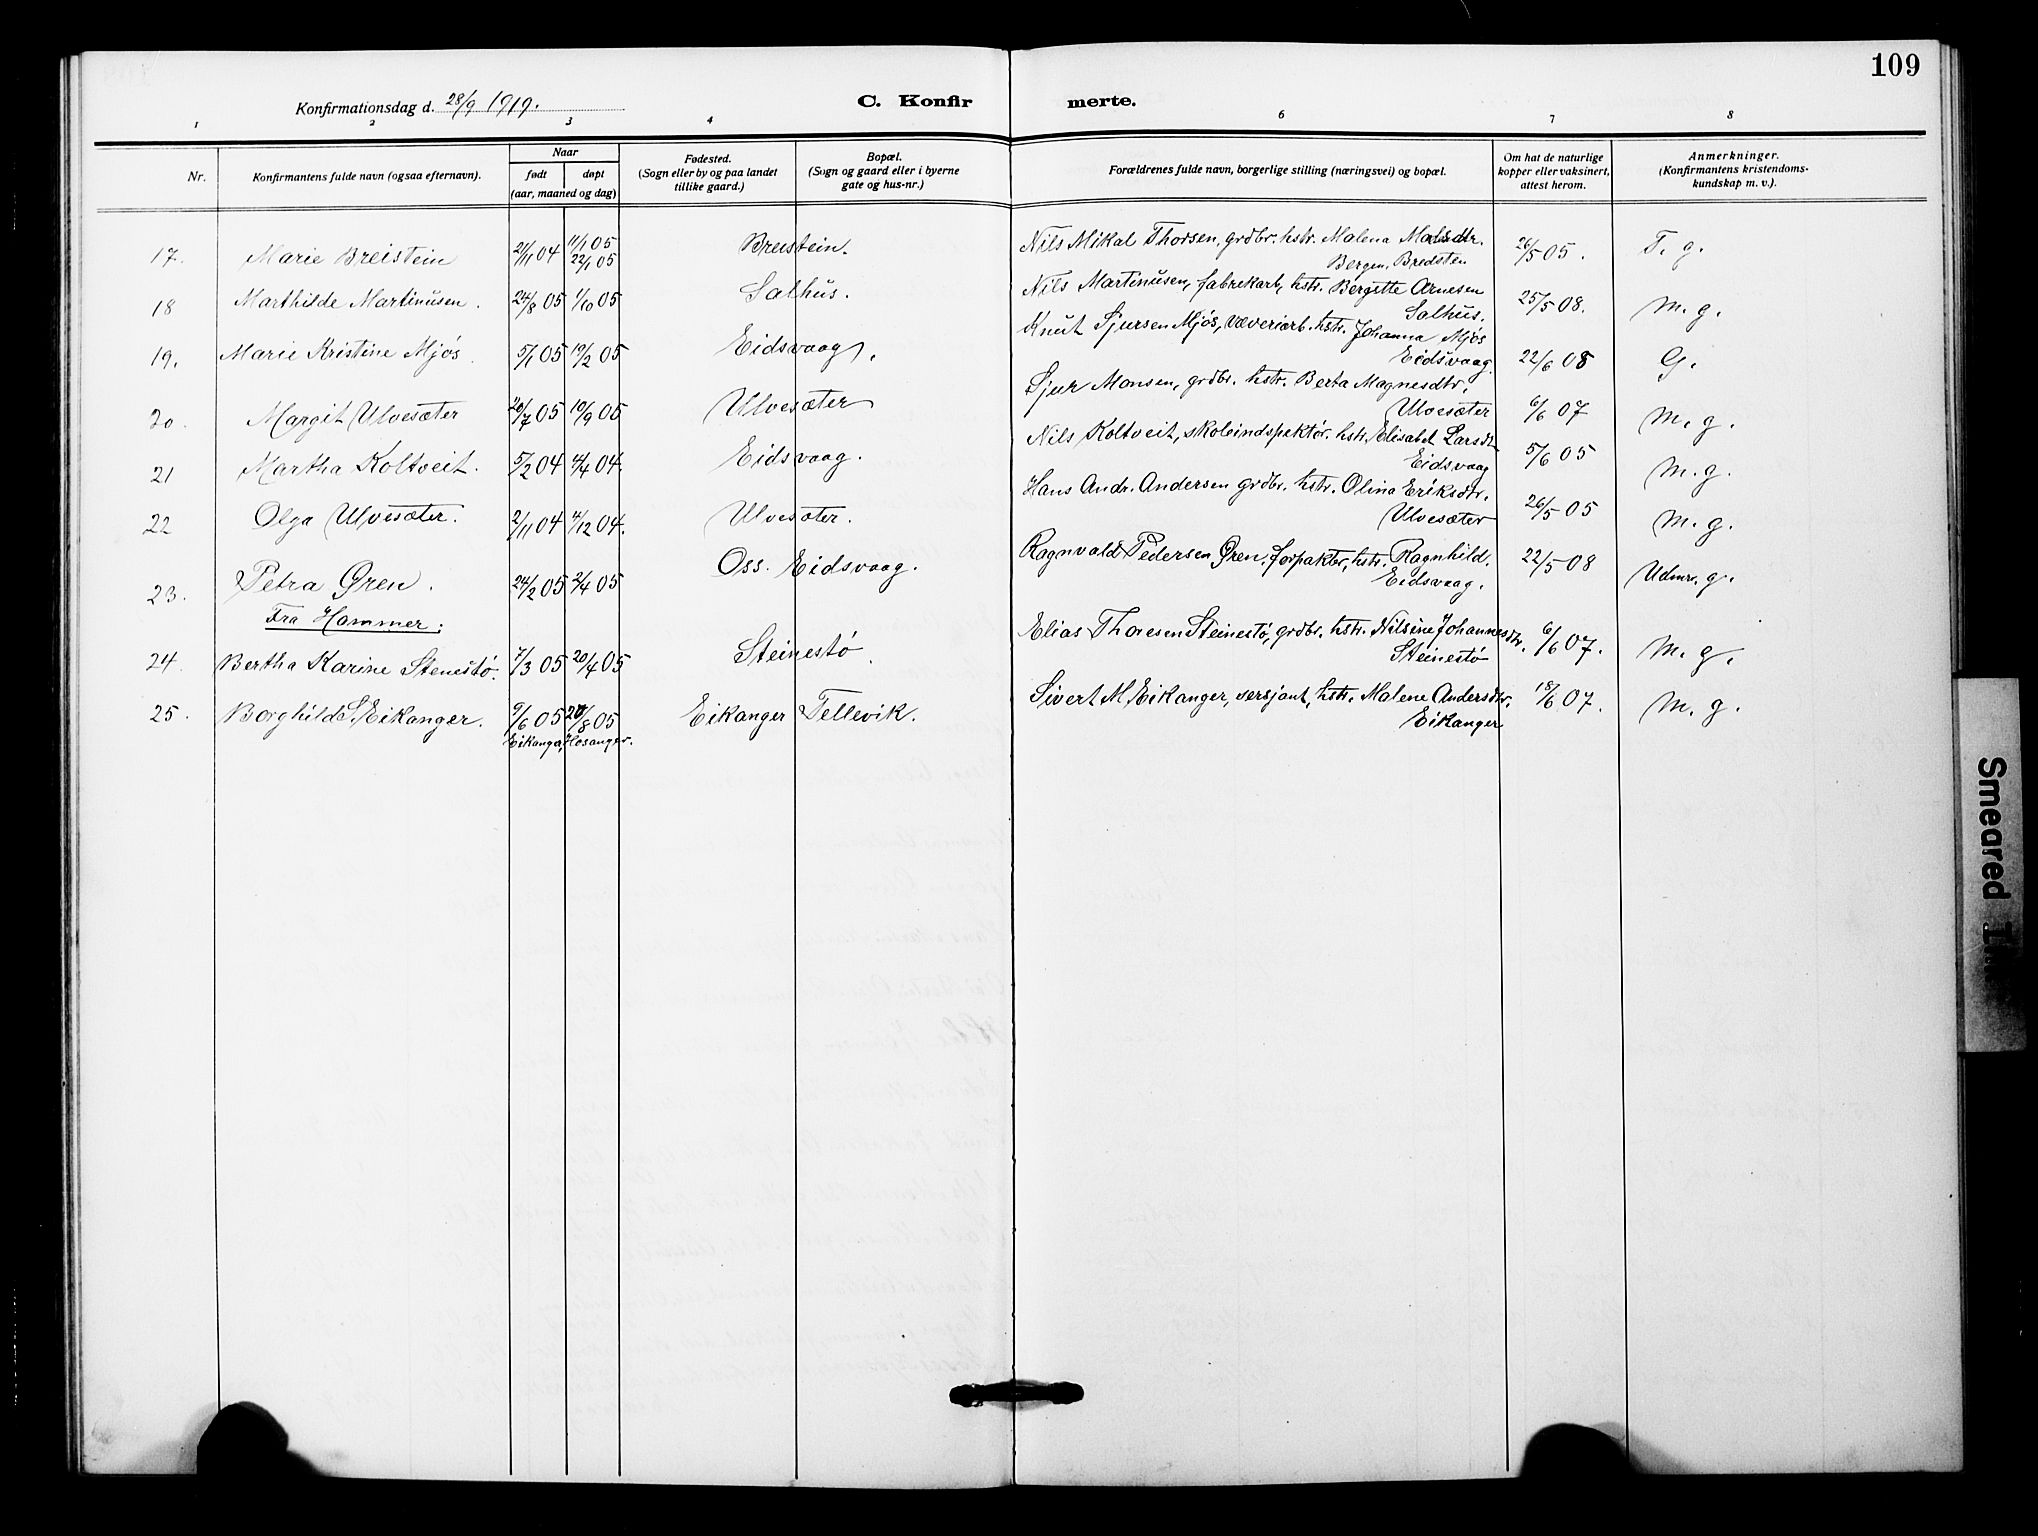 109
Konfirmationsdag d. 28/9 1919.
C. Konfirmerte.
1 2 3 4 6 7 8
Nr.
Konfirmantens fulde navn (ogsaa efternavn).
Naar
født døpt
(aar, maaned og dag)
Fødested.
(Sogn eller by og paa landet
tillike gaard.)
Bopæl.
(Sogn og gaard eller i byerne
gate og hus-nr.)
Forældrenes fulde navn, borgerlige stilling (næringsvei) og bopæl.
Om hat de naturlige
kopper eller vaksinert,
attest herom.
Anmerkninger.
(Konfirmantens kristendoms-
kundskap m. v.).
17. Marie Breistein 21/11 04 11/1 05 22/1 05 Breistein. Nils Mikal Thorsen, grdbr. hstr. Malena 26/5 05. T. g.
Bergen, Bredsten
18 Marthilde Martinusen. 24/8 05 1/10 05 Salhus. Nils Martinusen, fabrekarb, hstr. Bergitte Arnesen 25/5 08. M. g.
Salhus.
19. Marie Kristine Mjøs. 5/1 05 19/2 05 Eidsvaag. Knut Sjursen Mjøs, væveriarb. hstr. Johanna Mjøs 22/6 08 G.
Eidsvaag.
20. Margit Ulvesæter 20/7 05 10/9 05 Ulvesæter Sjur Monsen, grdbr. hstr. Berta Magnesdtr, 6/6 07 M. g.
Ulvesæter
21 Martha Koltveit. 5/2 04 4/4 04. Eidsvaag. Nils Koltveit, skoleindspektør. hstr, Elisabet Larsdt 5/6 05 M. g.
Eidsvaag
22 Olga Ulvesæter. 2/11 04 4/12 04. Ulvesæter. Hans Andr. Andersen grdbr. hstr. Olina Eriksdtr. 26/5 05 M. g.
Ulvesæter
23. Petra Øren. 24/2 05 2/4 05 Oss. Eidsvaag. Ragnvald Pedersen Øren, forpakter, hstr. Ragnhild. 22/5 08 Udmr. g.
Eidsvaag.
Fra Hammer:
24. Bertha Karine Stenestø. 7/3 05 20/4 05 Steinestø. Elias Thoresen Steinestø, grdbr. hstr. Nilsine Johannesdtr. 6/6 07. M. g.
Steinestø
25. Borghild S. Eikanger. 9/6 05 20/8 05 Eikanger Tellevik. Sivert M. Eikanger, versjant, hstr. Malene Andersdtr. 18/6 07. M. g.
Eikanger, Hosanger. Eikanger
Smeared